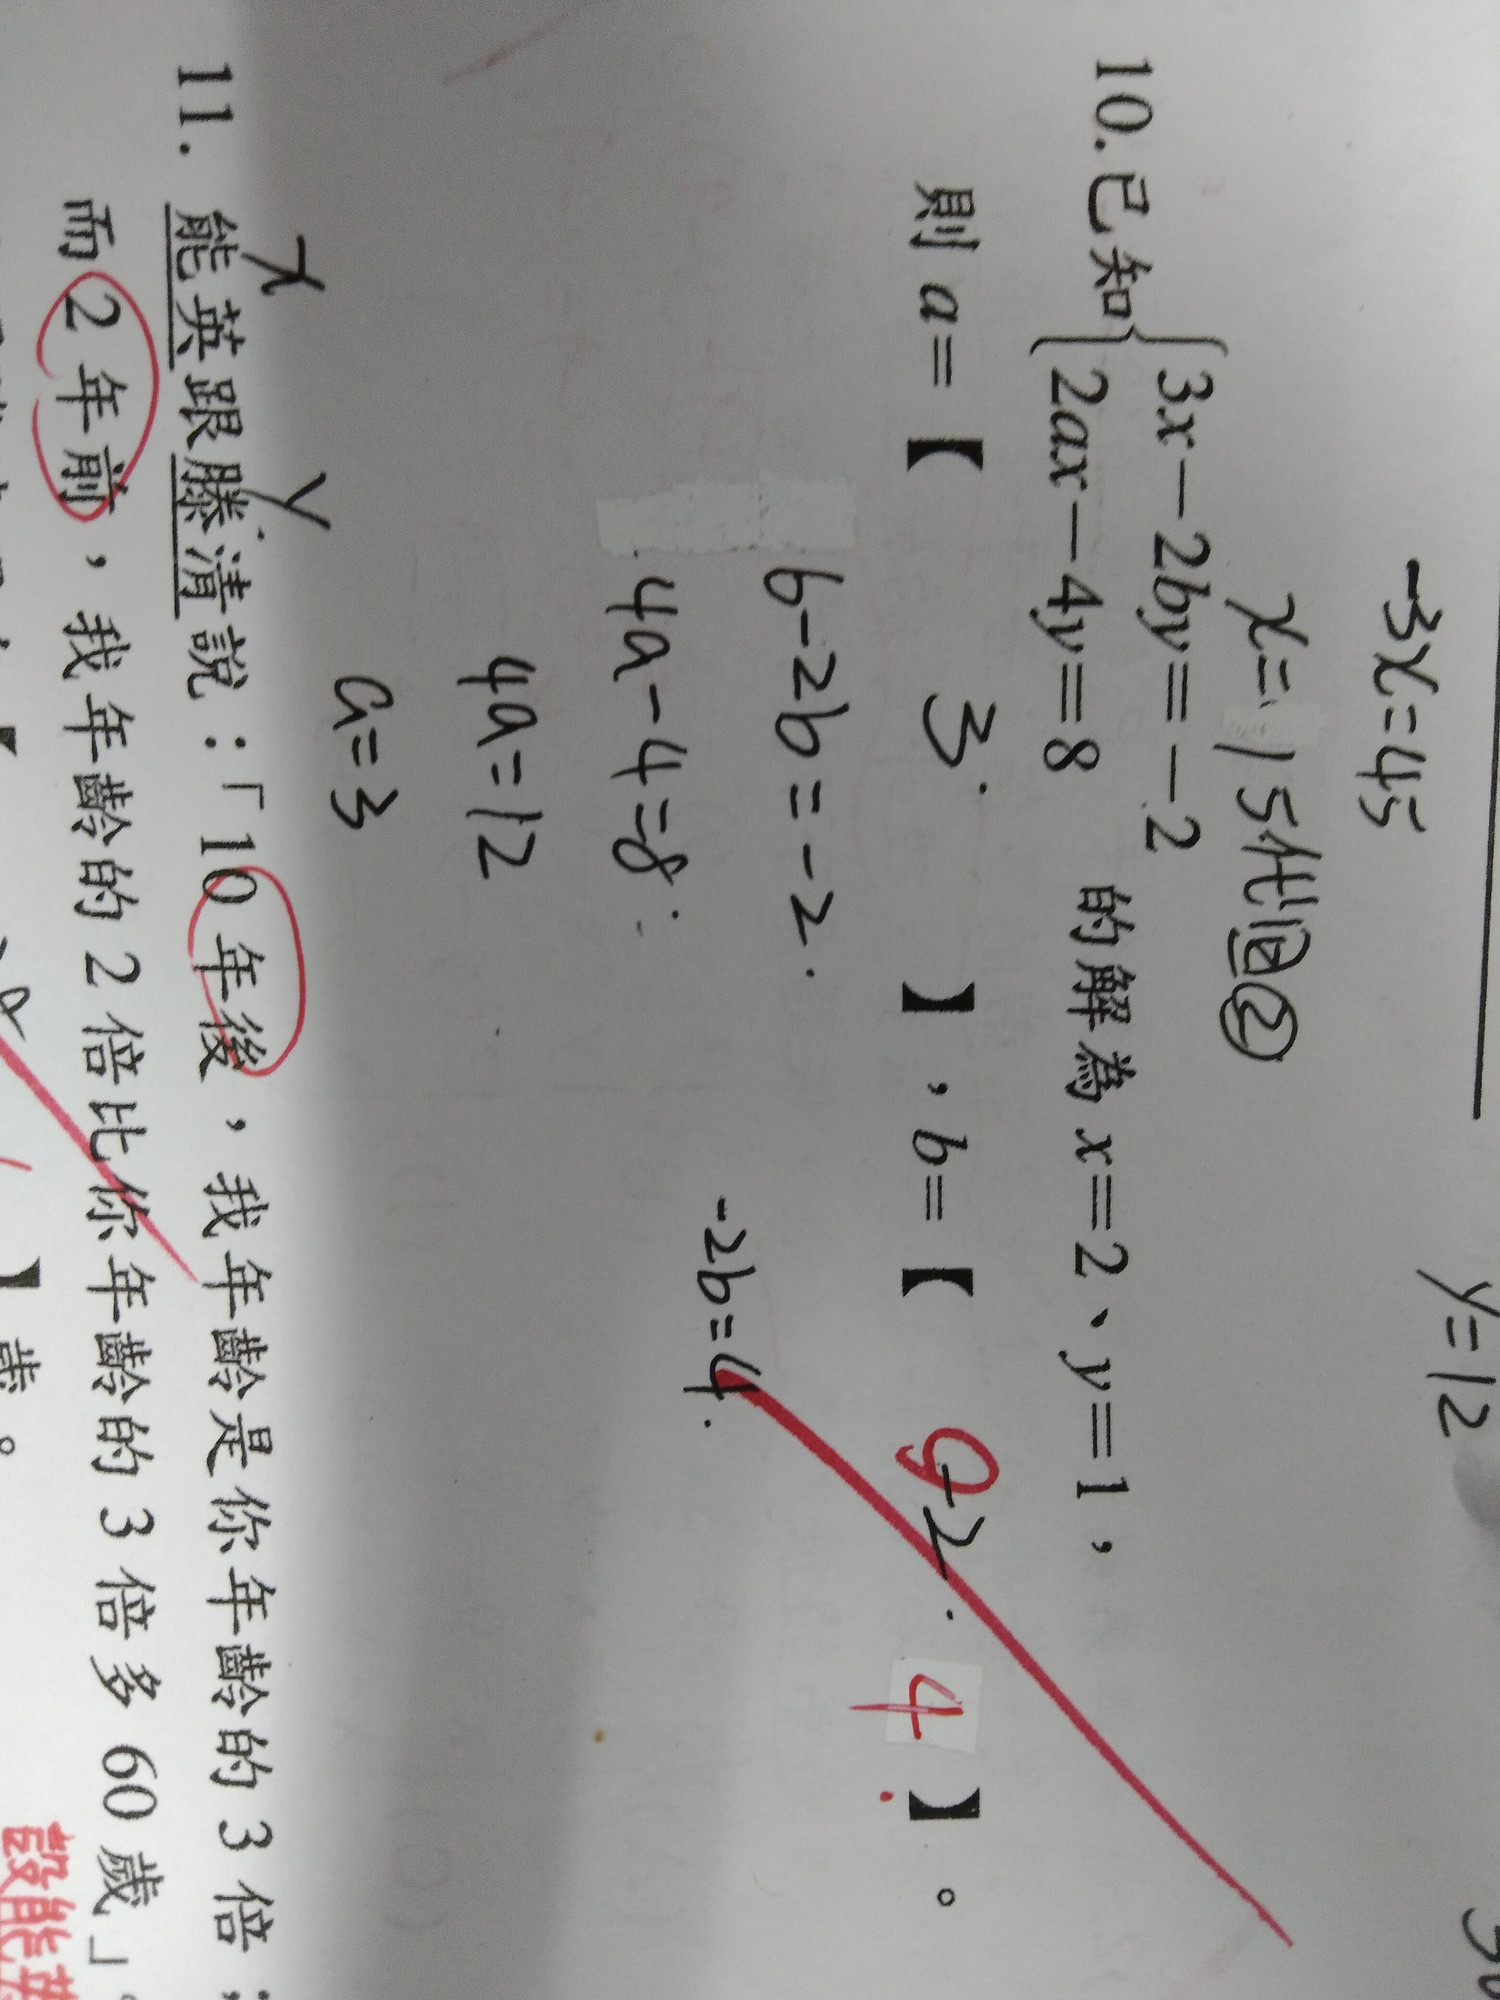 -3x=45
y=12
x=-15代回②
10.已知{3x-2by=-2
2ax-4y=8
的解為x=2、y=1，
則a=【 3 】，b=【 -2. 4 】。
6-2b=-2.
4a-4=8
-2b=4.
4a=12
a=3
x y
11. 能英跟滕清說：「10年後，我年齡是你年齡的3倍；
而2年前，我年齡的2倍比你年齡的3倍多60歲」。
設能英
【 】歲。